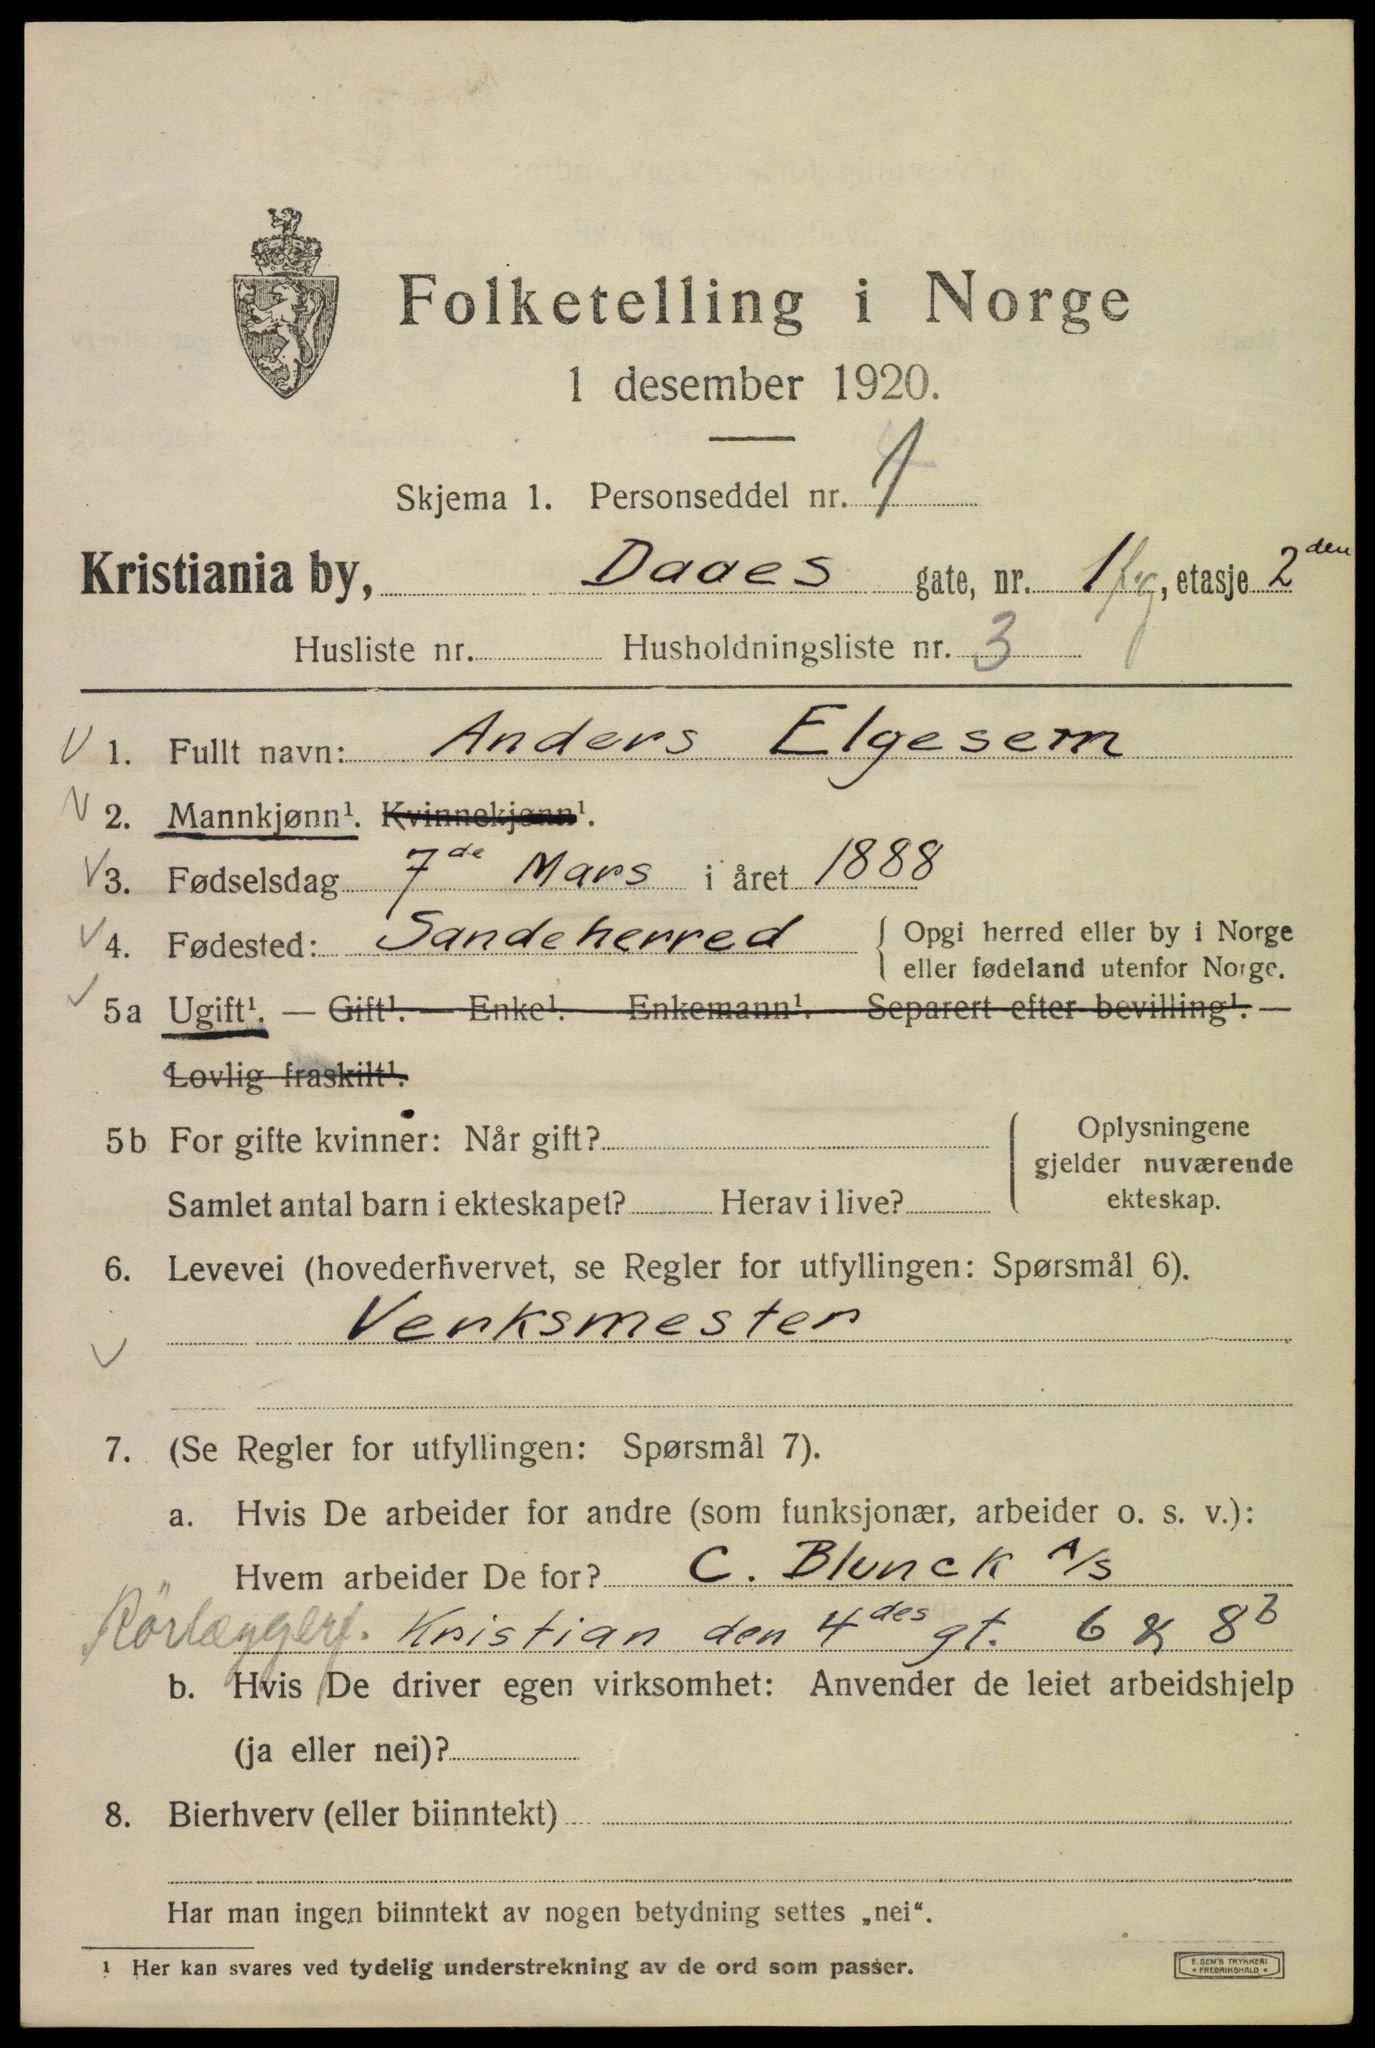 Folketelling i Norge
1 desember 1920.
Skjema 1. Personseddel nr. 1
Kristiania by, Daaes gate, nr. 1, etasje 2den
Husliste nr. Husholdningsliste nr. 3
1. Fullt navn: Anders Elgesem
2. Mannkjønn¹. Kvinnekjønn¹.
3. Fødselsdag 7de Mars i året 1888
4. Fødested: Sandeherred { Opgi herred eller by i Norge
eller fødeland utenfor Norge.
5a Ugift¹. — Gift¹. — Enke¹. — Enkemann¹. — Separert efter bevilling¹. —
Lovlig fraskilt¹.
5b For gifte kvinner: Når gift?
Samlet antal barn i ekteskapet? Herav i live?
Oplysningene
gjelder nuværende
ekteskap.
6. Levevei (hovederhvervet, se Regler for utfyllingen: Spørsmål 6).
Verksmester
7. (Se Regler for utfyllingen: Spørsmål 7).
a. Hvis De arbeider for andre (som funksjonær, arbeider o. s. v.):
Hvem arbeider De for? C. Blunck A/S
Rörlæggerf. Kristian den 4des gt. 6 & 8b
b. Hvis De driver egen virksomhet: Anvender de leiet arbeidshjelp
(ja eller nei)?
8. Bierhverv (eller biinntekt)
Har man ingen biinntekt av nogen betydning settes „nei“.
¹ Her kan svares ved tydelig understrekning av de ord som passer.
E. SEM'S TRYKKERI
* FREDRIKSHALD *